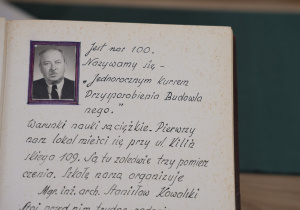 Jest nas 100.
Nazywamy się -
„Jednorocznym kursem
Przysposobienia Budowla
nego."
Warunki nauki są ciężkie. Pierwszy
nasz lokal mieści się przy ul. Kiliń
skiego 109. Są tu zaledwie trzy pomiesz
czenia. Szkołę naszą organizuje
Mgr. inż. arch. Stanisław Kowalski